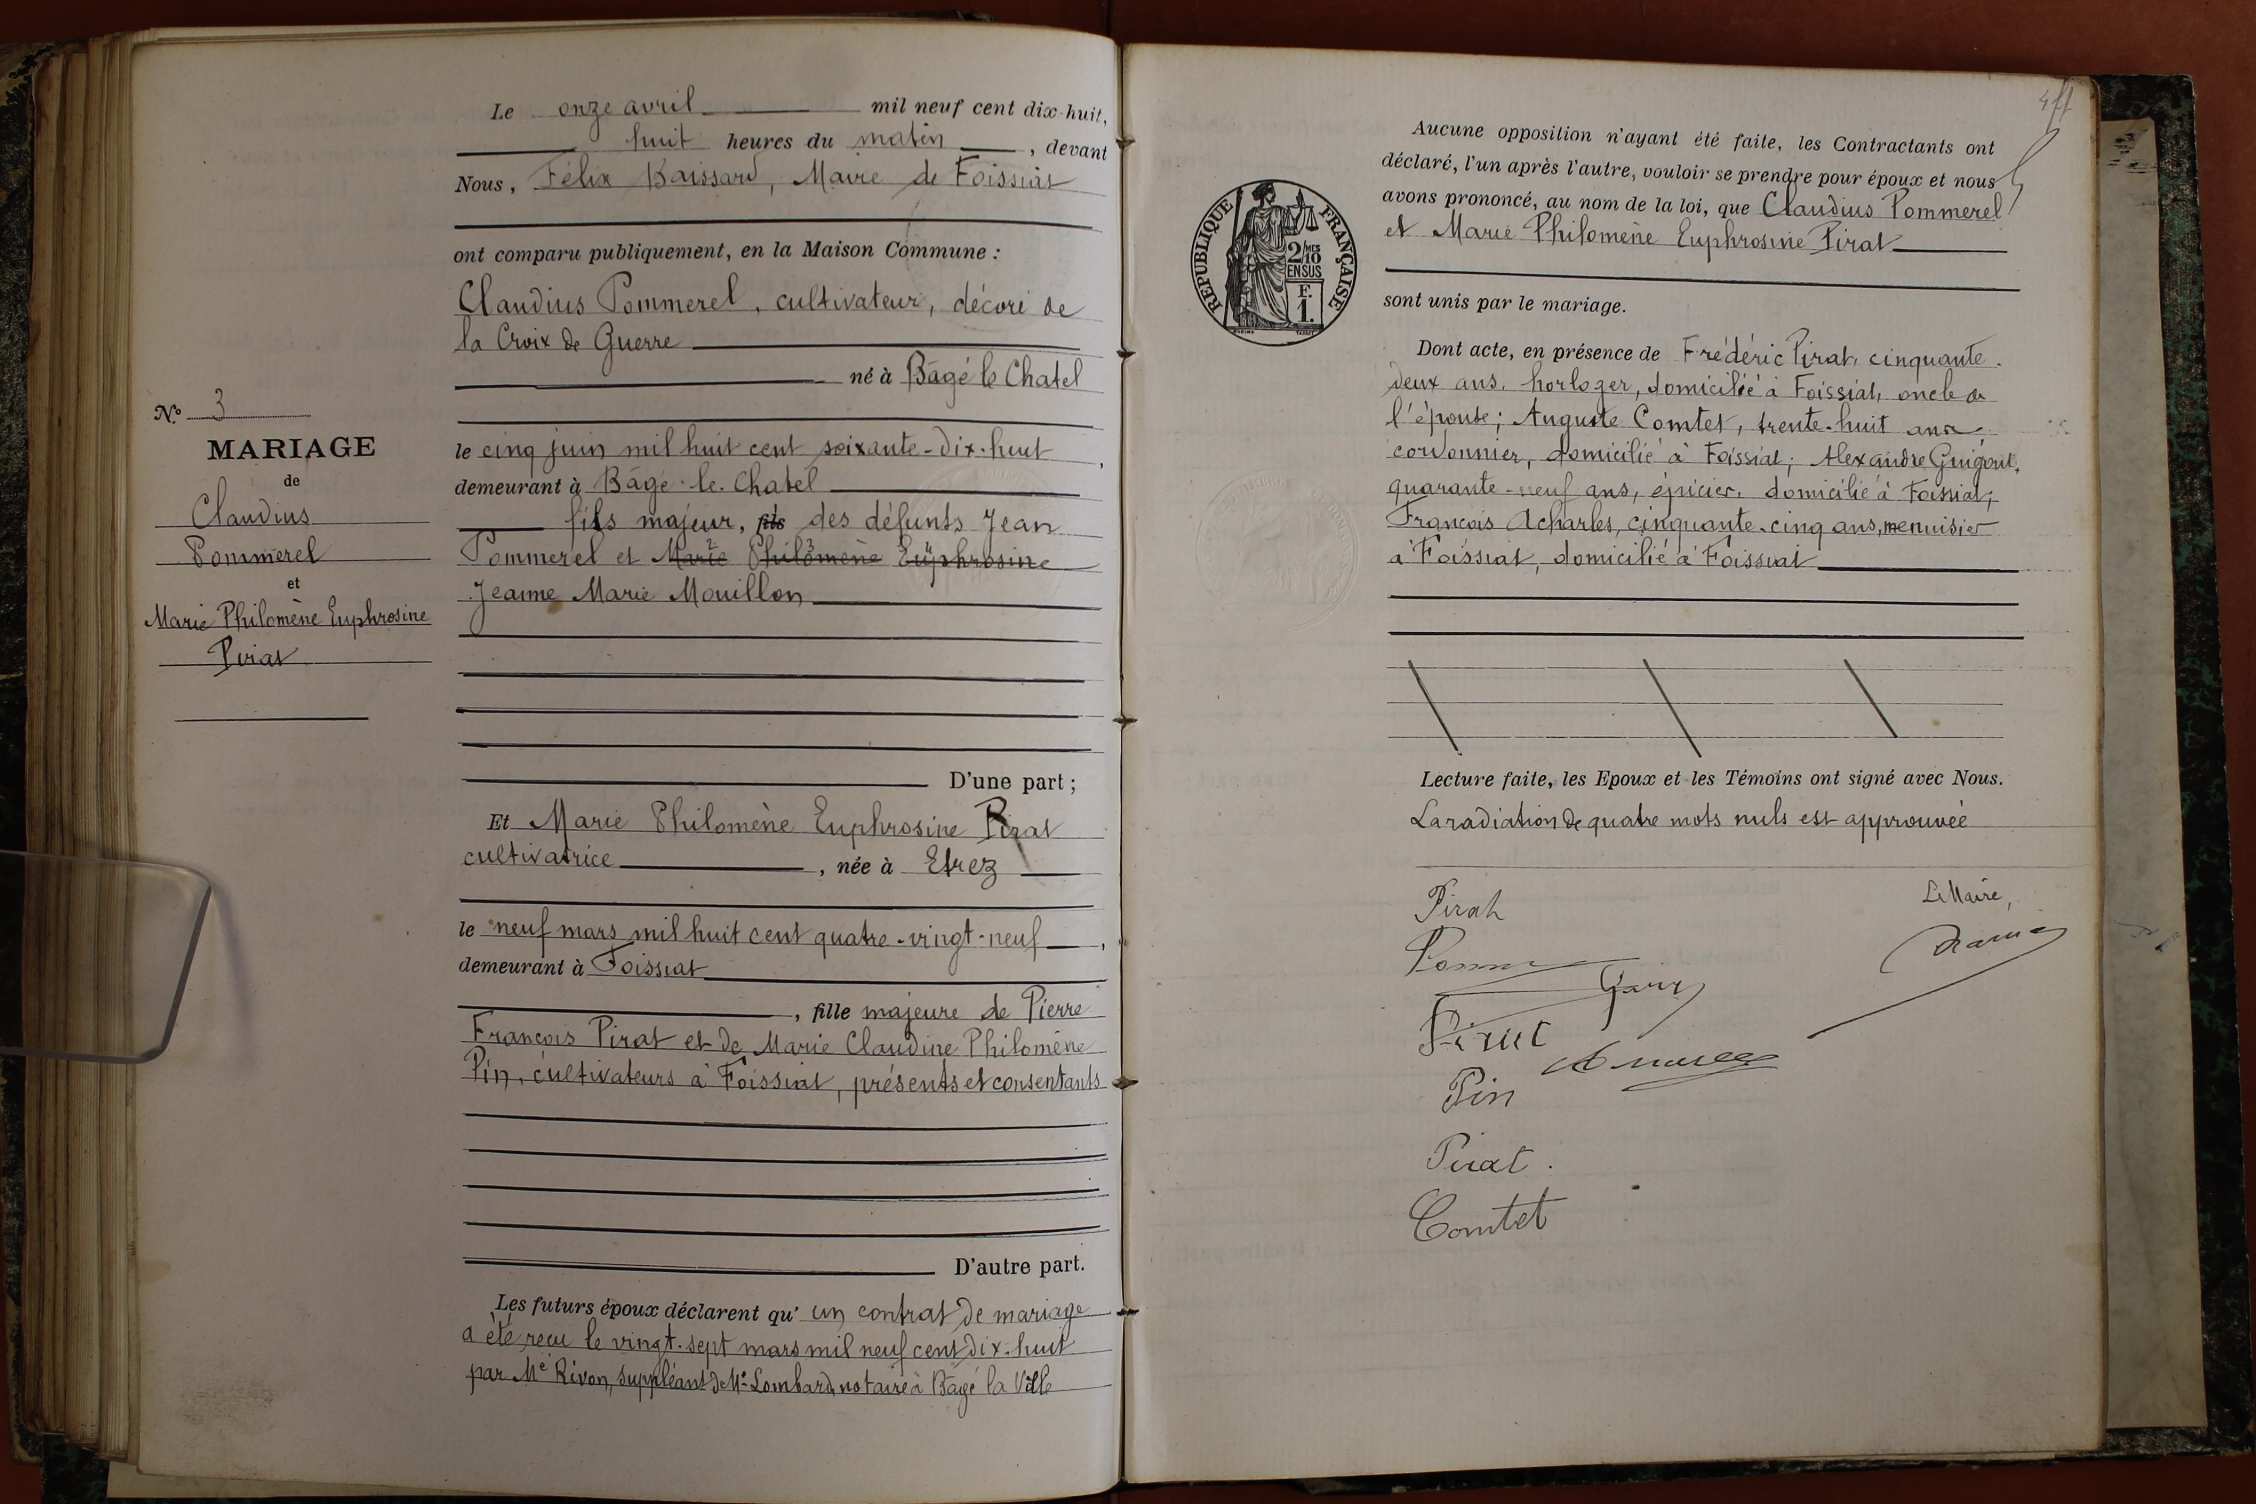 Le onze avril mil neuf cent dix-huit,
huit heures du matin, devant
Nous, Félix Baissard, Maire de Foissiat
ont comparu publiquement, en la Maison Commune :
Claudius Pommerel, cultivateur, décoré de
la Croix de Guerre
né à Bâgé le Chatel
le cinq juin mil huit cent soixante-dix-huit,
demeurant à Bâgé-le-Chatel
fils majeur, fils des défunts Jean
Pommerel et Marie Philomène Euphrosine
Jeanne Marie Mouillon
D'une part ;
N° 3
MARIAGE
de
Claudius
Pommerel
et
Marie Philomène Euphrosine
Pirat
Et Marie Philomène Euphrosine Pirat
cultivatrice, née à Etrez
le neuf mars mil huit cent quatre-vingt-neuf,
demeurant à Foissiat
, fille majeure de Pierre
François Pirat et de Marie Claudine Philomène
Pin, cultivateurs à Foissiat, présents et consentants
D'autre part.
Les futurs époux déclarent qu'un contrat de mariage
a été reçu le vingt-sept mars mil neuf cent dix-huit
par Me Rivon, suppléant de Me Lombard, notaire à Bâgé la Ville
RÉPUBLIQUE FRANÇAISE
2/10 MES
EN SUS
F.
1.
Aucune opposition n'ayant été faite, les Contractants ont
déclaré, l'un après l'autre, vouloir se prendre pour époux et nous
avons prononcé, au nom de la loi, que Claudius Pommerel
et Marie Philomène Euphrosine Pirat
sont unis par le mariage.
Dont acte, en présence de Frédéric Pirat, cinquante-
deux ans, horloger, domicilié à Foissiat, oncle de
l'épouse ; Auguste Comtet, trente-huit ans
cordonnier, domicilié à Foissiat ; Alexandre Guigout,
quarante-neuf ans, épicier, domicilié à Foissiat,
François Acharles, cinquante-cinq ans, menuisier
à Foissiat, domicilié à Foissiat
Lecture faite, les Epoux et les Témoins ont signé avec Nous.
La radiation de quatre mots nuls est approuvée
Le Maire,
Pirat
Pirat
Pin
Pirat.
Comtet